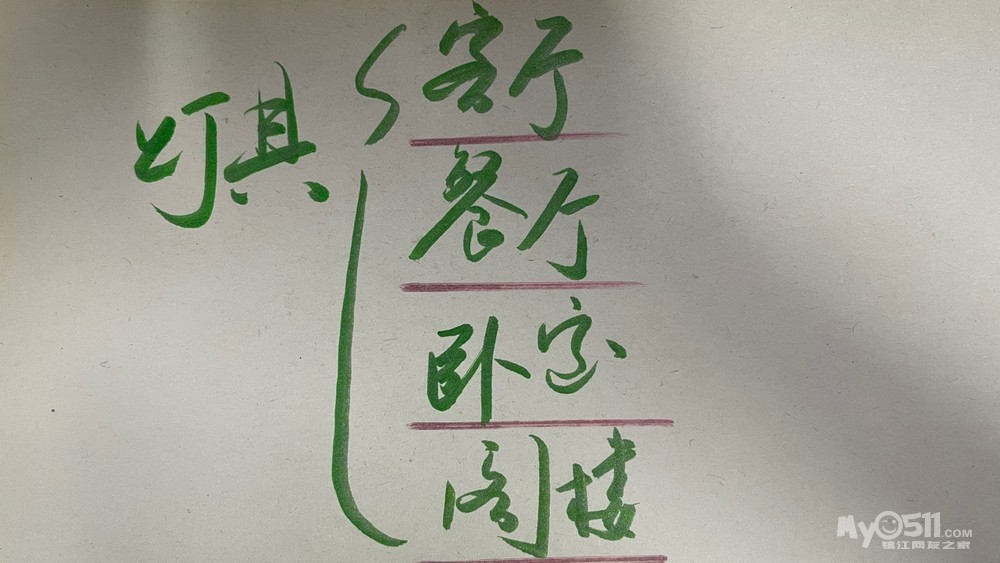 灯具
客厅
餐厅
卧室
阁楼
My0511.COM
镇江网友之家